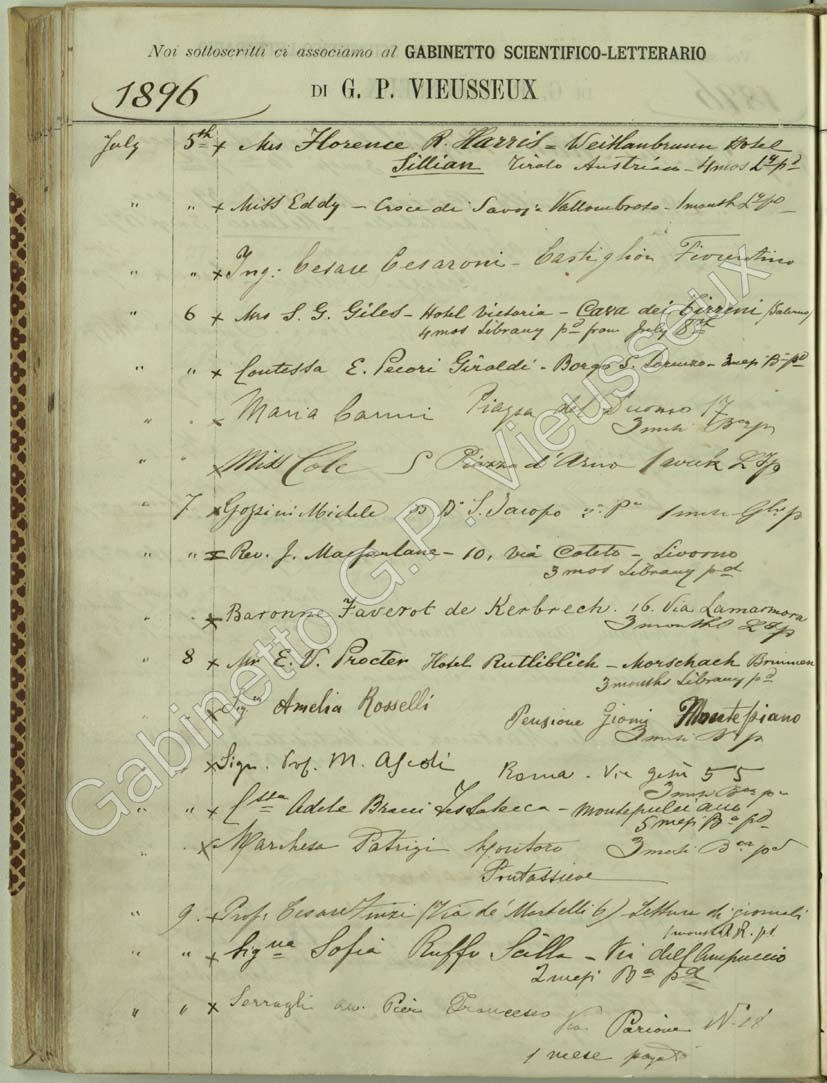 Noi sottoscritti ci associamo al GABINETTO SCIENTIFICO-LETTERARIO
1896 DI G. P. VIEUSSEUX
July 5th x Mrs Florence R. Harris = Weitlanbrunn Hotel
Sillian Tirolo Austriaco - 4 mos pd
" " x Miss Eddy - Croce di Savoja Vallombrosa - 1 month
" " x Ing: Cesare Cesaroni - Castiglion Fiorentino
" 6 x Mrs S. G. Giles - Hotel Victoria - Cava dei Tirreni (Salerno)
4 mos Library pd from July 8th
" " x Contessa E. Pecori Giraldi - Borgo S. Lorenzo - 3 mesi pd
" " x Maria Piazza del Duomo 17
3
" " x Miss Cole 5 Piazza d'Arno 1 week
" 7 x Michele S. Jacopo
" " x Rev. J. Macfarlane - 10, via - Livorno
3 mos Library pd
" " x Baronne Faverot de Kerbrech. 16. Via Lamarmora
3 months
" 8 x Mr E. V. Procter Hotel Rutliblick - Morschach Brunnen
3 months Library pd
" " x Amelia Rosselli
Pensione Montepiano
3
x Sign. Prof. M. Ascoli Roma - Via Gesù 55
3
" " x Cssa Adele Bracci - Montepulciano
5 mesi Ba pd
x Marchesa Patrizi Montoro 3
Pontassieve
" 9. x Prof. Cesare Finzi (Via de' Martelli 6) - Lettura di giornali
1 month R. pd
" " x Signa Sofia Ruffo Scilla - Via del Campuccio
2 mesi Ba pd
" " x Serragli av. Pier Francesco
Via Parione No
1 mese
Gabinetto G.P. Vieusseux